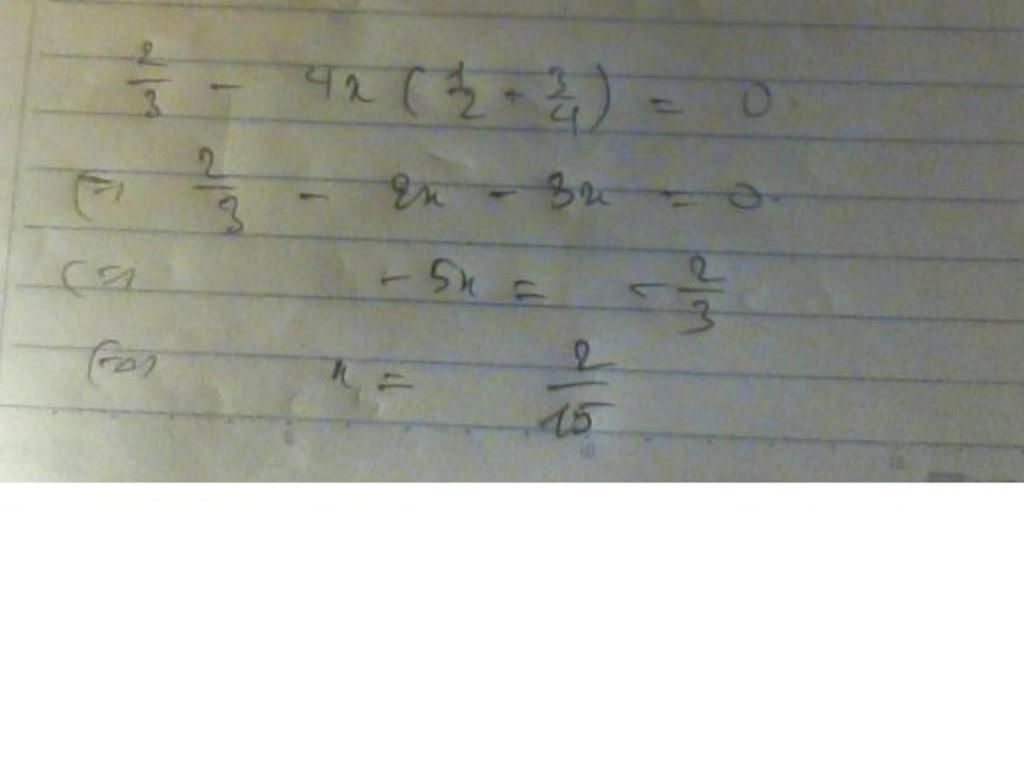 2/3 - 4x (1/2 + 3/4) = 0
(=) 2/3 - 2x - 3x = 0
(=) - 5x = - 2/3
(=) x = 2/15